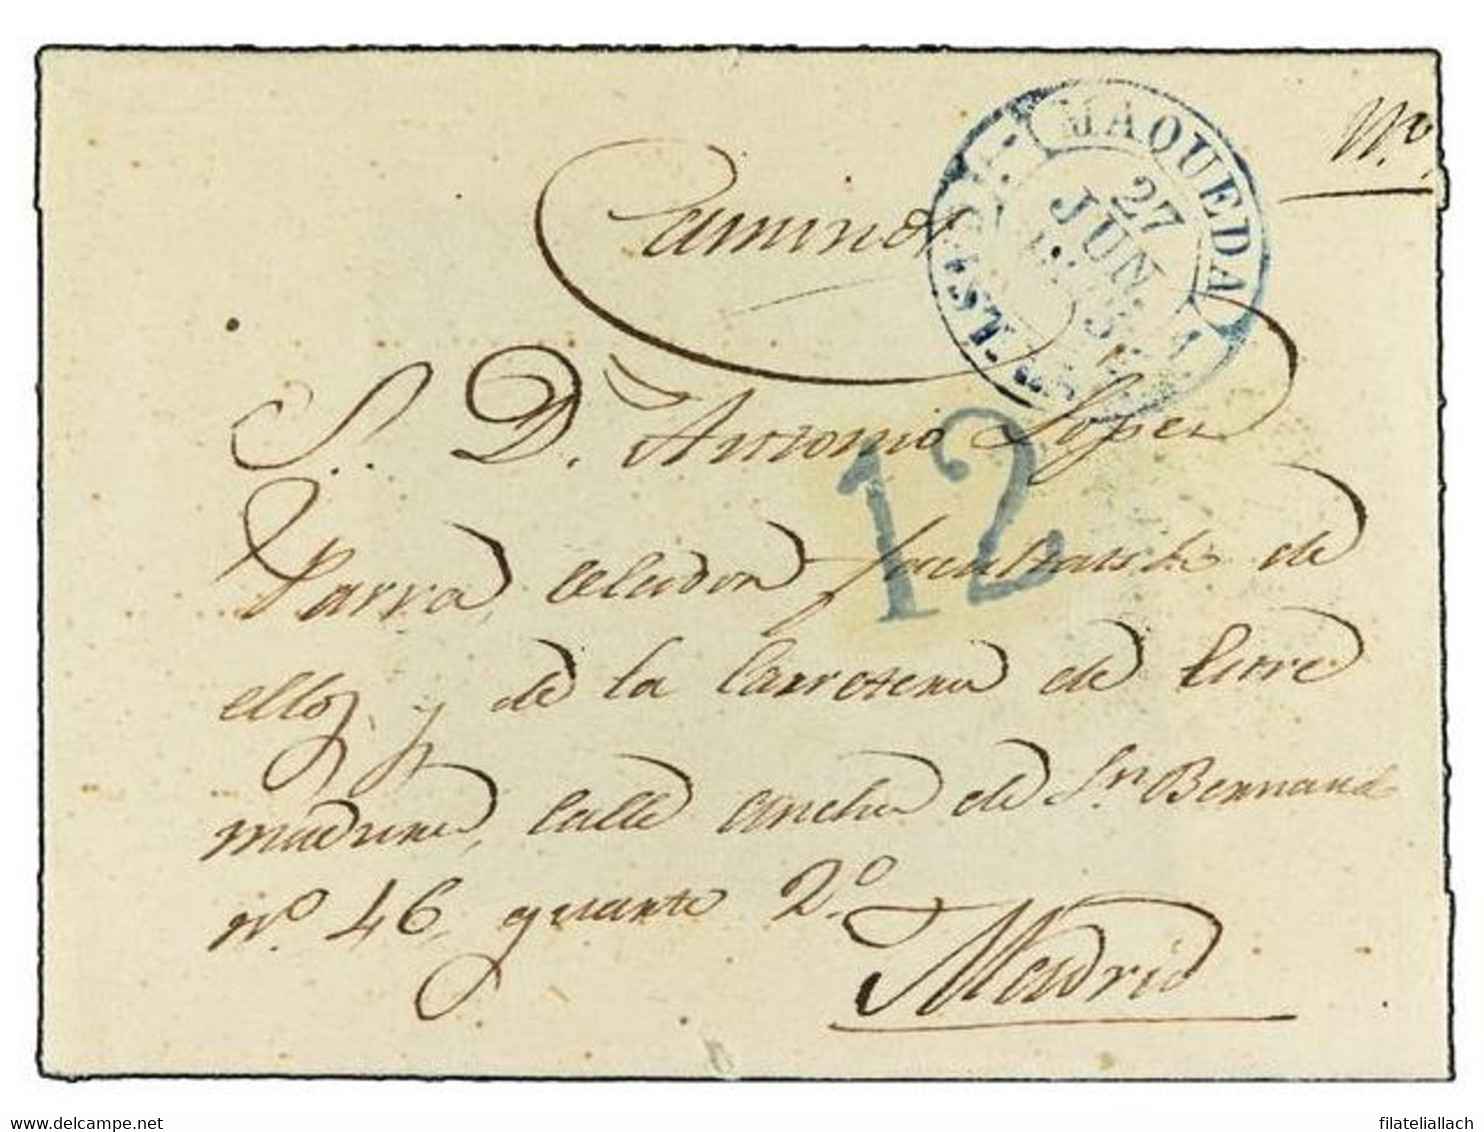 MAQUEDA
27
JUN
Caminos
12
S. D. Antonio Lopez
Parra, celador facultativo de
ellos, y de la Carretera de Estre
madura, calle ancha de Sn. Bernardo
nº. 46, quarto 2º.
Madrid
www.delcampe.net
filateliallach